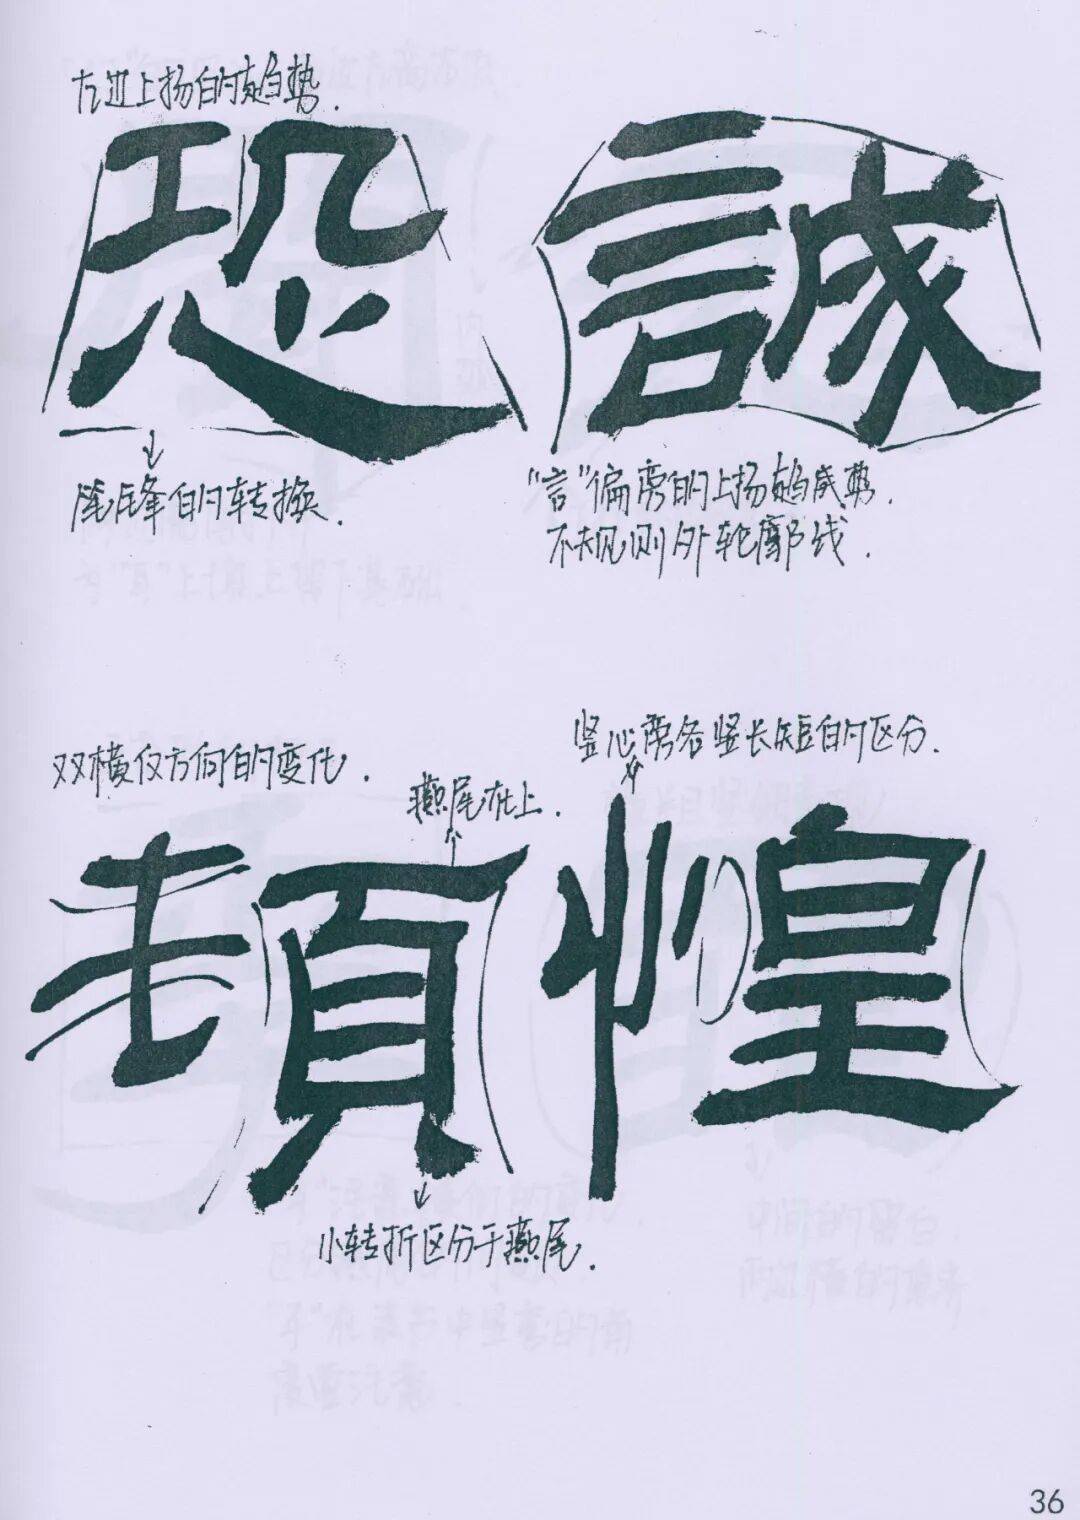 左边上扬的趋势.
恐 誠
锋的转换.
“言”偏旁的上扬趋势.
不规则外轮廓线.
竖心旁各竖长短的区分.
双横仅方向的变化.
燕尾在上.
頓 惶
小转折区分于燕尾.
36